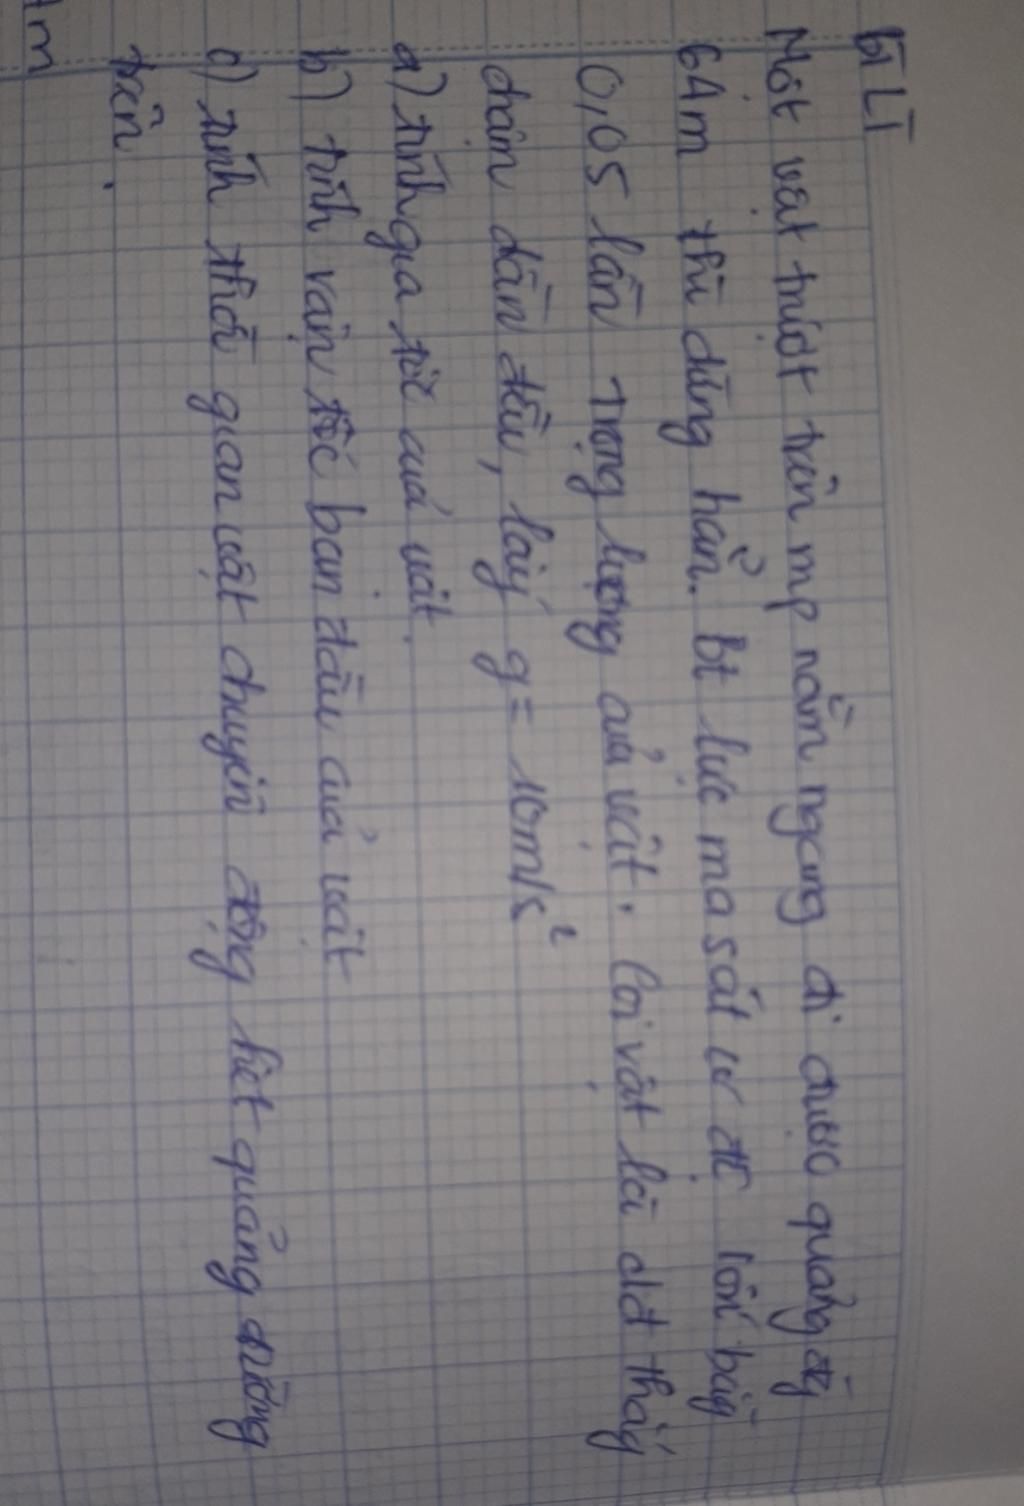 Bài Lí
Một vật trượt trên mp nằm ngang đi được quãng đg
64m thì dừng hẳn. bt lực ma sát có độ lớn bằg
0,05 lần trọng lượng của vật. Coi vật là cđ thẳg
chậm dần đều, lấy g = 10m/s²
a) tính gia tốc của vật.
b) tính vận tốc ban đầu của vật
c) tính thời gian vật chuyển động hết quảng đường
trên.
m